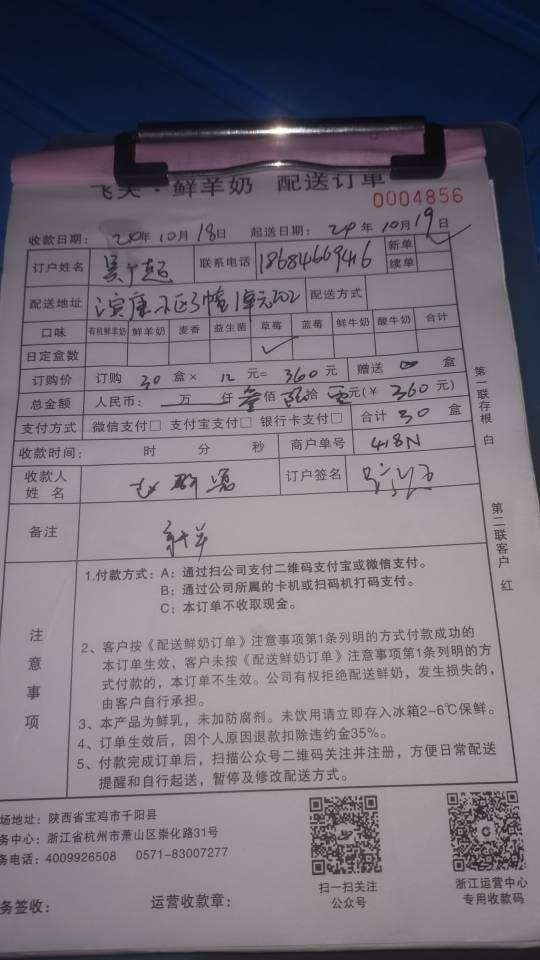 飞天·鲜羊奶 配送订单
0004856
收款日期： 24年10月18日 起送日期： 24年10月19日
新单 ✓
续单
订户姓名 联系电话 18684669416
配送地址 3幢1单元202 配送方式
口味 有机鲜羊奶 鲜羊奶 麦香 益生菌 草莓 蓝莓 鲜牛奶 酸牛奶 合计
日定盒数 ✓
订购价 订购 30 盒× 12 元= 360 元 赠送 盒
总金额 人民币： 万 仟 叁佰 陆拾 零元(￥ 360 元)
支付方式 微信支付□ 支付宝支付□ 银行卡支付□ 合计 30 盒
收款时间： 时 分 秒 商户单号 418N
收款人姓名 订户签名
备注 新单
注意事项
1.付款方式：A：通过扫公司支付二维码支付宝或微信支付。
B：通过公司所属的卡机或扫码机打码支付。
C：本订单不收取现金。
2、客户按《配送鲜奶订单》注意事项第1条列明的方式付款成功的
本订单生效，客户未按《配送鲜奶订单》注意事项第1条列明的方
式付款的，本订单不生效。公司有权拒绝配送鲜奶，发生损失的，
由客户自行承担。
3、本产品为鲜乳，未加防腐剂。未饮用请立即存入冰箱2-6℃保鲜。
4、订单生效后，因个人原因退款扣除违约金35%。
5、付款完成订单后，扫描公众号二维码关注并注册，方便日常配送
提醒和自行起送，暂停及修改配送方式。
第一联存根 白
第二联客户 红
场地址：陕西省宝鸡市千阳县
务中心：浙江省杭州市萧山区崇化路31号
务电话：4009926508 0571-83007277
扫一扫关注
公众号
浙江运营中心
专用收款码
务签收： 运营收款章：